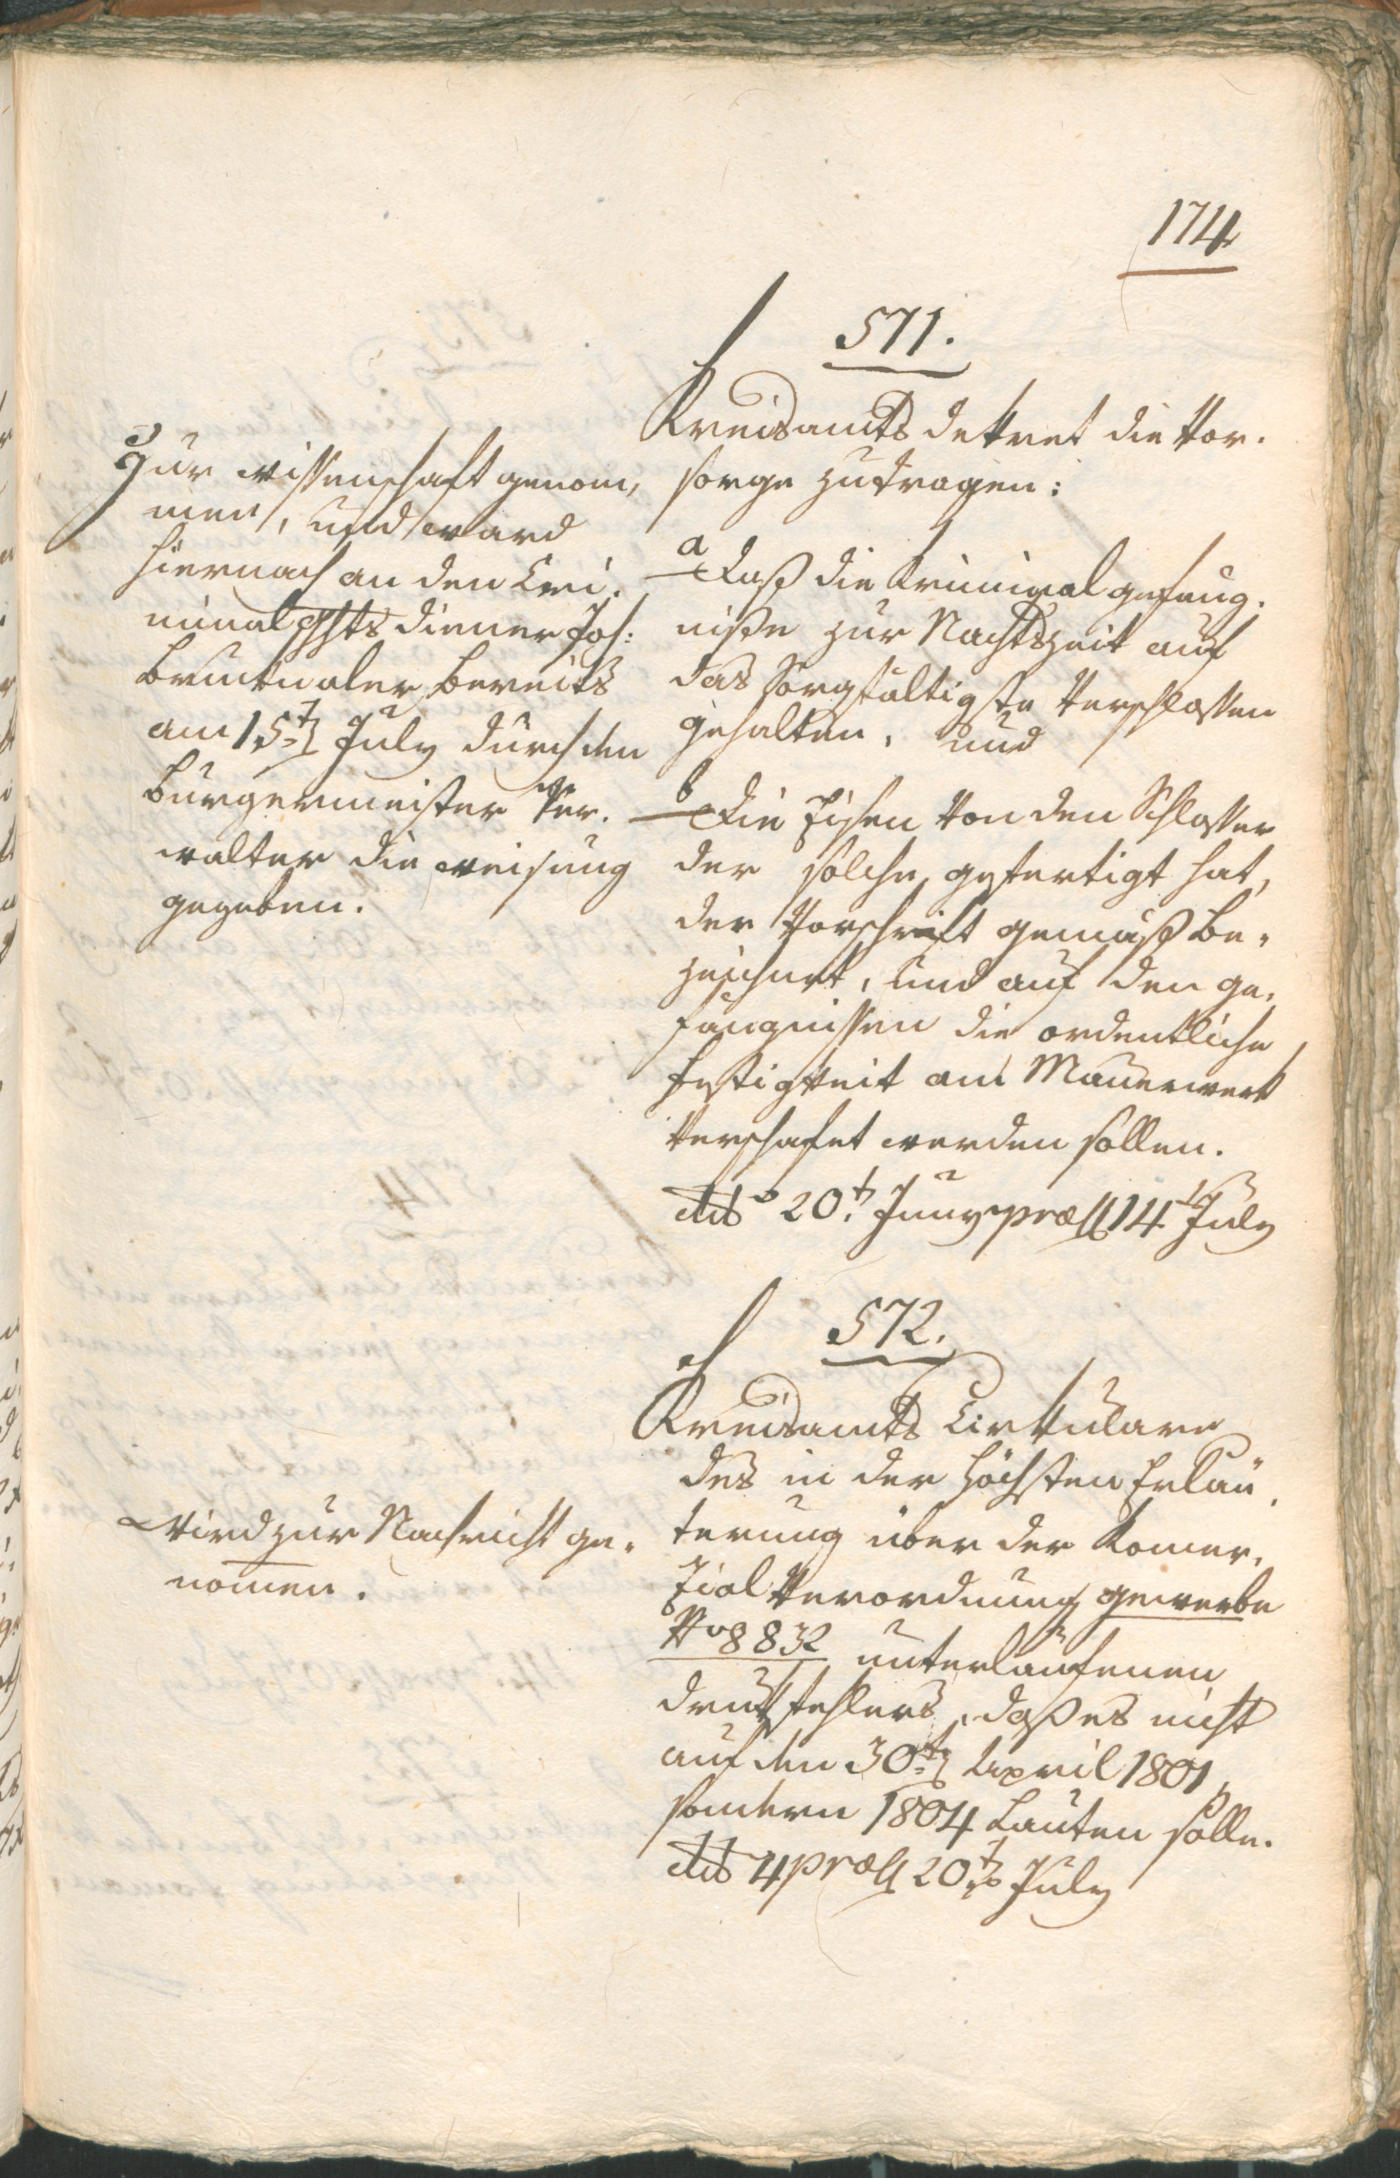 174
571.
Kreisamts dekret die Vor-
sorge zutragen:
a daß die Kriminal gefäng-
niße zur Nachtszeit auf
das sorgfältigste Verschlossen
gehalten, und
b die Eisen von den Schlosser
der solche gefertigt hat,
der Vorschrift gemäß be-
zeichnet, und auf den ge-
fängnissen die ordentliche
festigkeit am Mauerwerk
Verschafet werden sollen.
ddo 20t Juny præs 14t July
Zur wissenschaft genom-
men, und ward
hiernach an den Cri-
minal ghts diener Jos:
bereits
am 15ten July durch den
burgermeister Ver-
walter die weisung
gegeben.
572.
Kreisamts Cirkulare
des in der höchsten Erläu-
terung über der Komer-
zial Verordnung gewerbe
No 8832 unterlaufenen
drukfehlers, daß es nicht
auf den 30ten April 1801,
sondern 1804 lauten solle.
ddo 4 præs 20t July
Wird zur Nachricht ge-
nomen.